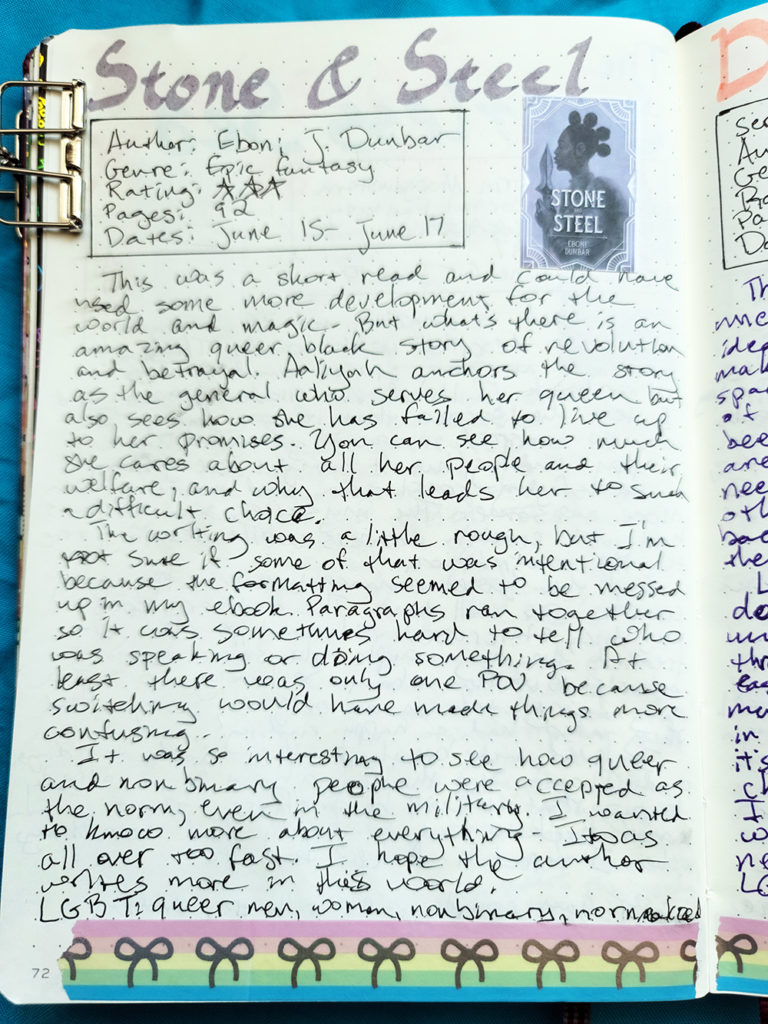 Stone & Steel
Author: Eboni J. Dunbar
Genre: Epic fantasy
Rating: ☆☆☆
Pages: 92
Dates: June 15- June 17
STONE
STEEL
EBONI
DUNBAR
This was a short read and could have
used some more development for the
world and magic. But what's there is an
amazing queer black story of revolution
and betrayal. Aaliyah anchors the story
as the general who serves her queen but
also sees how she has failed to live up
to her promises. You can see how much
she cares about all her people and their
welfare, and why that leads her to such
a difficult choice.
The writing was a little rough, but I'm
not sure if some of that was intentional
because the formatting seemed to be messed
up in my ebook. Paragraphs ran together
so it was sometimes hard to tell who
was speaking or doing something. At
least there was only one POV because
switching would have made things more
confusing.
It was so interesting to see how queer
and nonbinary people were accepted as
the norm, even in the military. I wanted
to know more about everything- It was
all over too fast. I hope the author
writes more in this world.
LGBT: queer men, women, nonbinary, normalized
72
D
Au
Ge
Ra
Pa
Da
Th
idea
mak
spac
of
bee
are
nee
oth
bac
the
L
do
un
thr
eas
mo
in
it's
ch
I
w
ne
LG